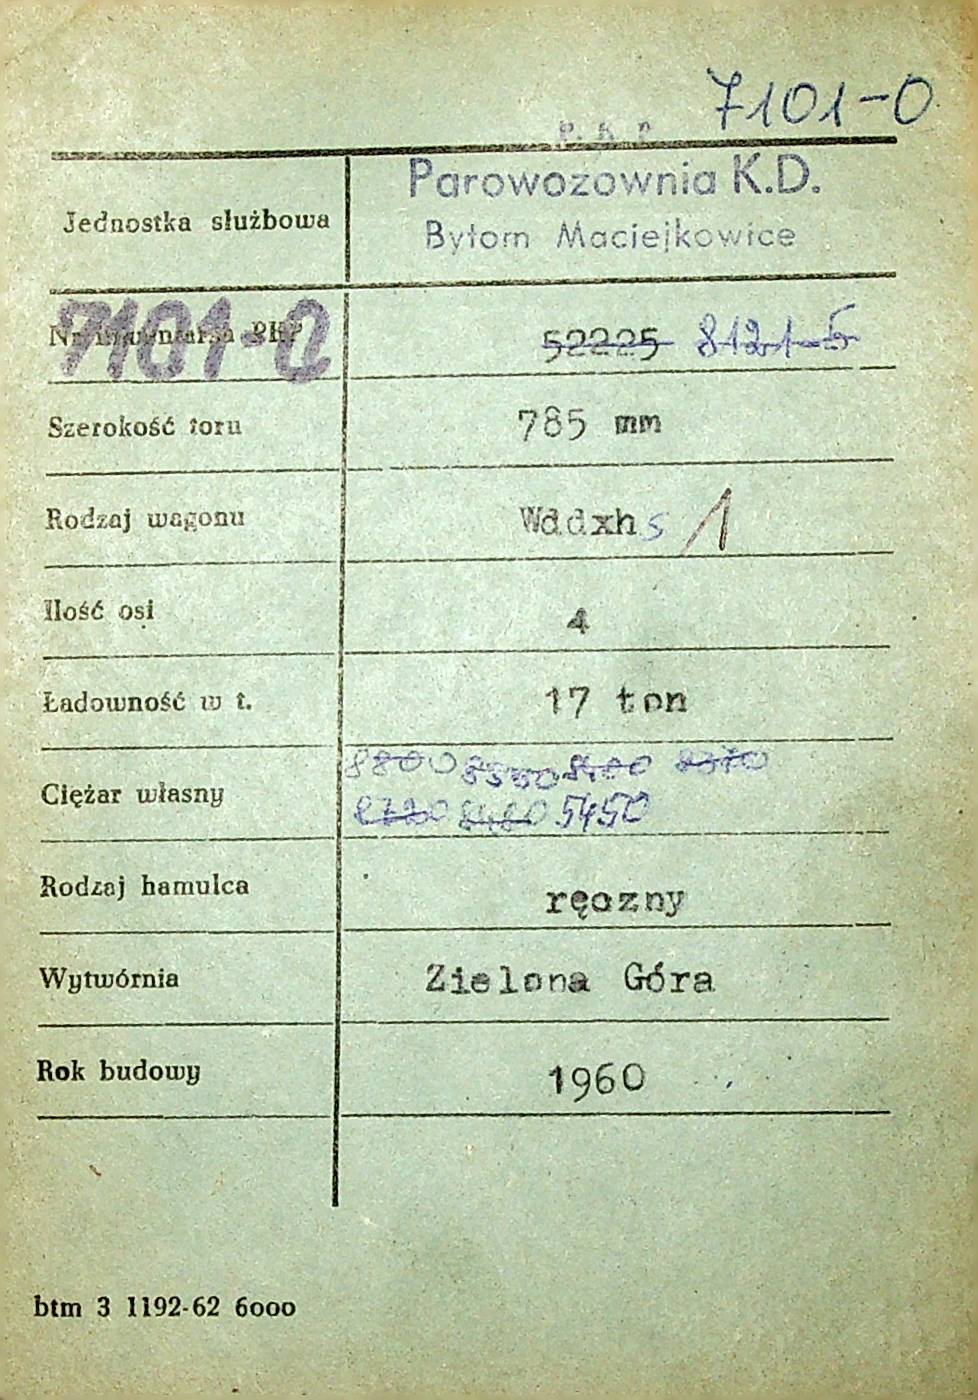 7101-0
P. K. P.
Parowozownia K.D.
Jednostka służbowa
Bytom Maciejkowice
7101-0
Nr inwentarza PKP 52225 8121-5
Szerokość toru 785 mm
Rodzaj wagonu Wddxhs 1
Ilość osi 4
Ładowność w t. 17 ton
8800 8550 8370
Ciężar własny
5450
Rodzaj hamulca ręczny
Wytwórnia Zielona Góra
Rok budowy 1960
btm 3 1192-62 6000